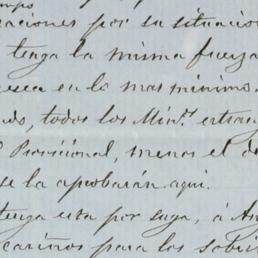 raciones por su situacion
tenga la misma fuerza
en lo mas minimo.
todos los Min.s estran
Provisional, menos el de
se la aprobarán aqui.
tenga esta por suya, á An
cariños para los sobri